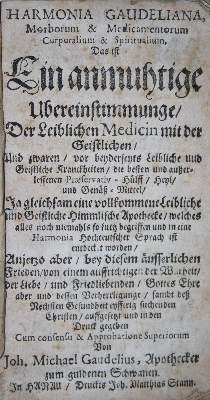 HARMONIA GAUDELIANA,
Morborum & Medicamentorum
Corporalium & Spiritualium,
Das ist
Ein anmuhtige
Ubereinstimmunge/
Der Leiblichen Medicin mit der
Geistlichen/
Und zwaren/ vor beyderseyts Leibliche und
Geistliche Kranckheiten/ die besten und außer-
lesenen Præservativ- Hülff/ Heyl/
und Genäß-Mittel/
Ja gleichsam eine vollkommene Leibliche
und Geistliche Himmlische Apothecke/ welches
alles noch niemahls so kurtz begriffen und in eine
Harmonia Hochteutscher Sprach ist
entdeckt worden/
Anjetzo aber/ bey diesem äusserlichen
Frieden/ von einem auffrichtigen der Warheit/
der Liebe/ und Friedliebenden/ Gottes Ehre
aber und dessen Verherrligunge/ sambt deß
Nechsten Gesundheit eyfferig suchenden
Christen/ auffgesetzt und in den
Druck gegeben
Cum consensu & Approbatione Superiorum
Von
Joh. Michael Gaudelius, Apothecker
zum guldenen Schwanen.
In HANAU/ Druckts Joh. Matthias Stann.